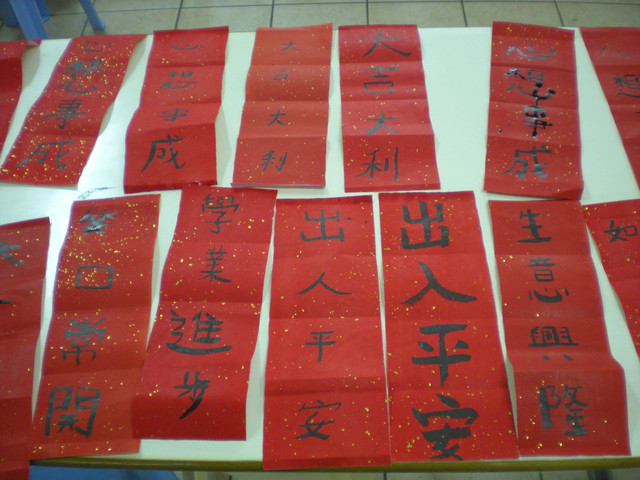 心想事成
心想事成
大吉大利
大吉大利
心想事成
心想
大
笑口常開
學業進步
出人平安
出入平安
生意興隆
如